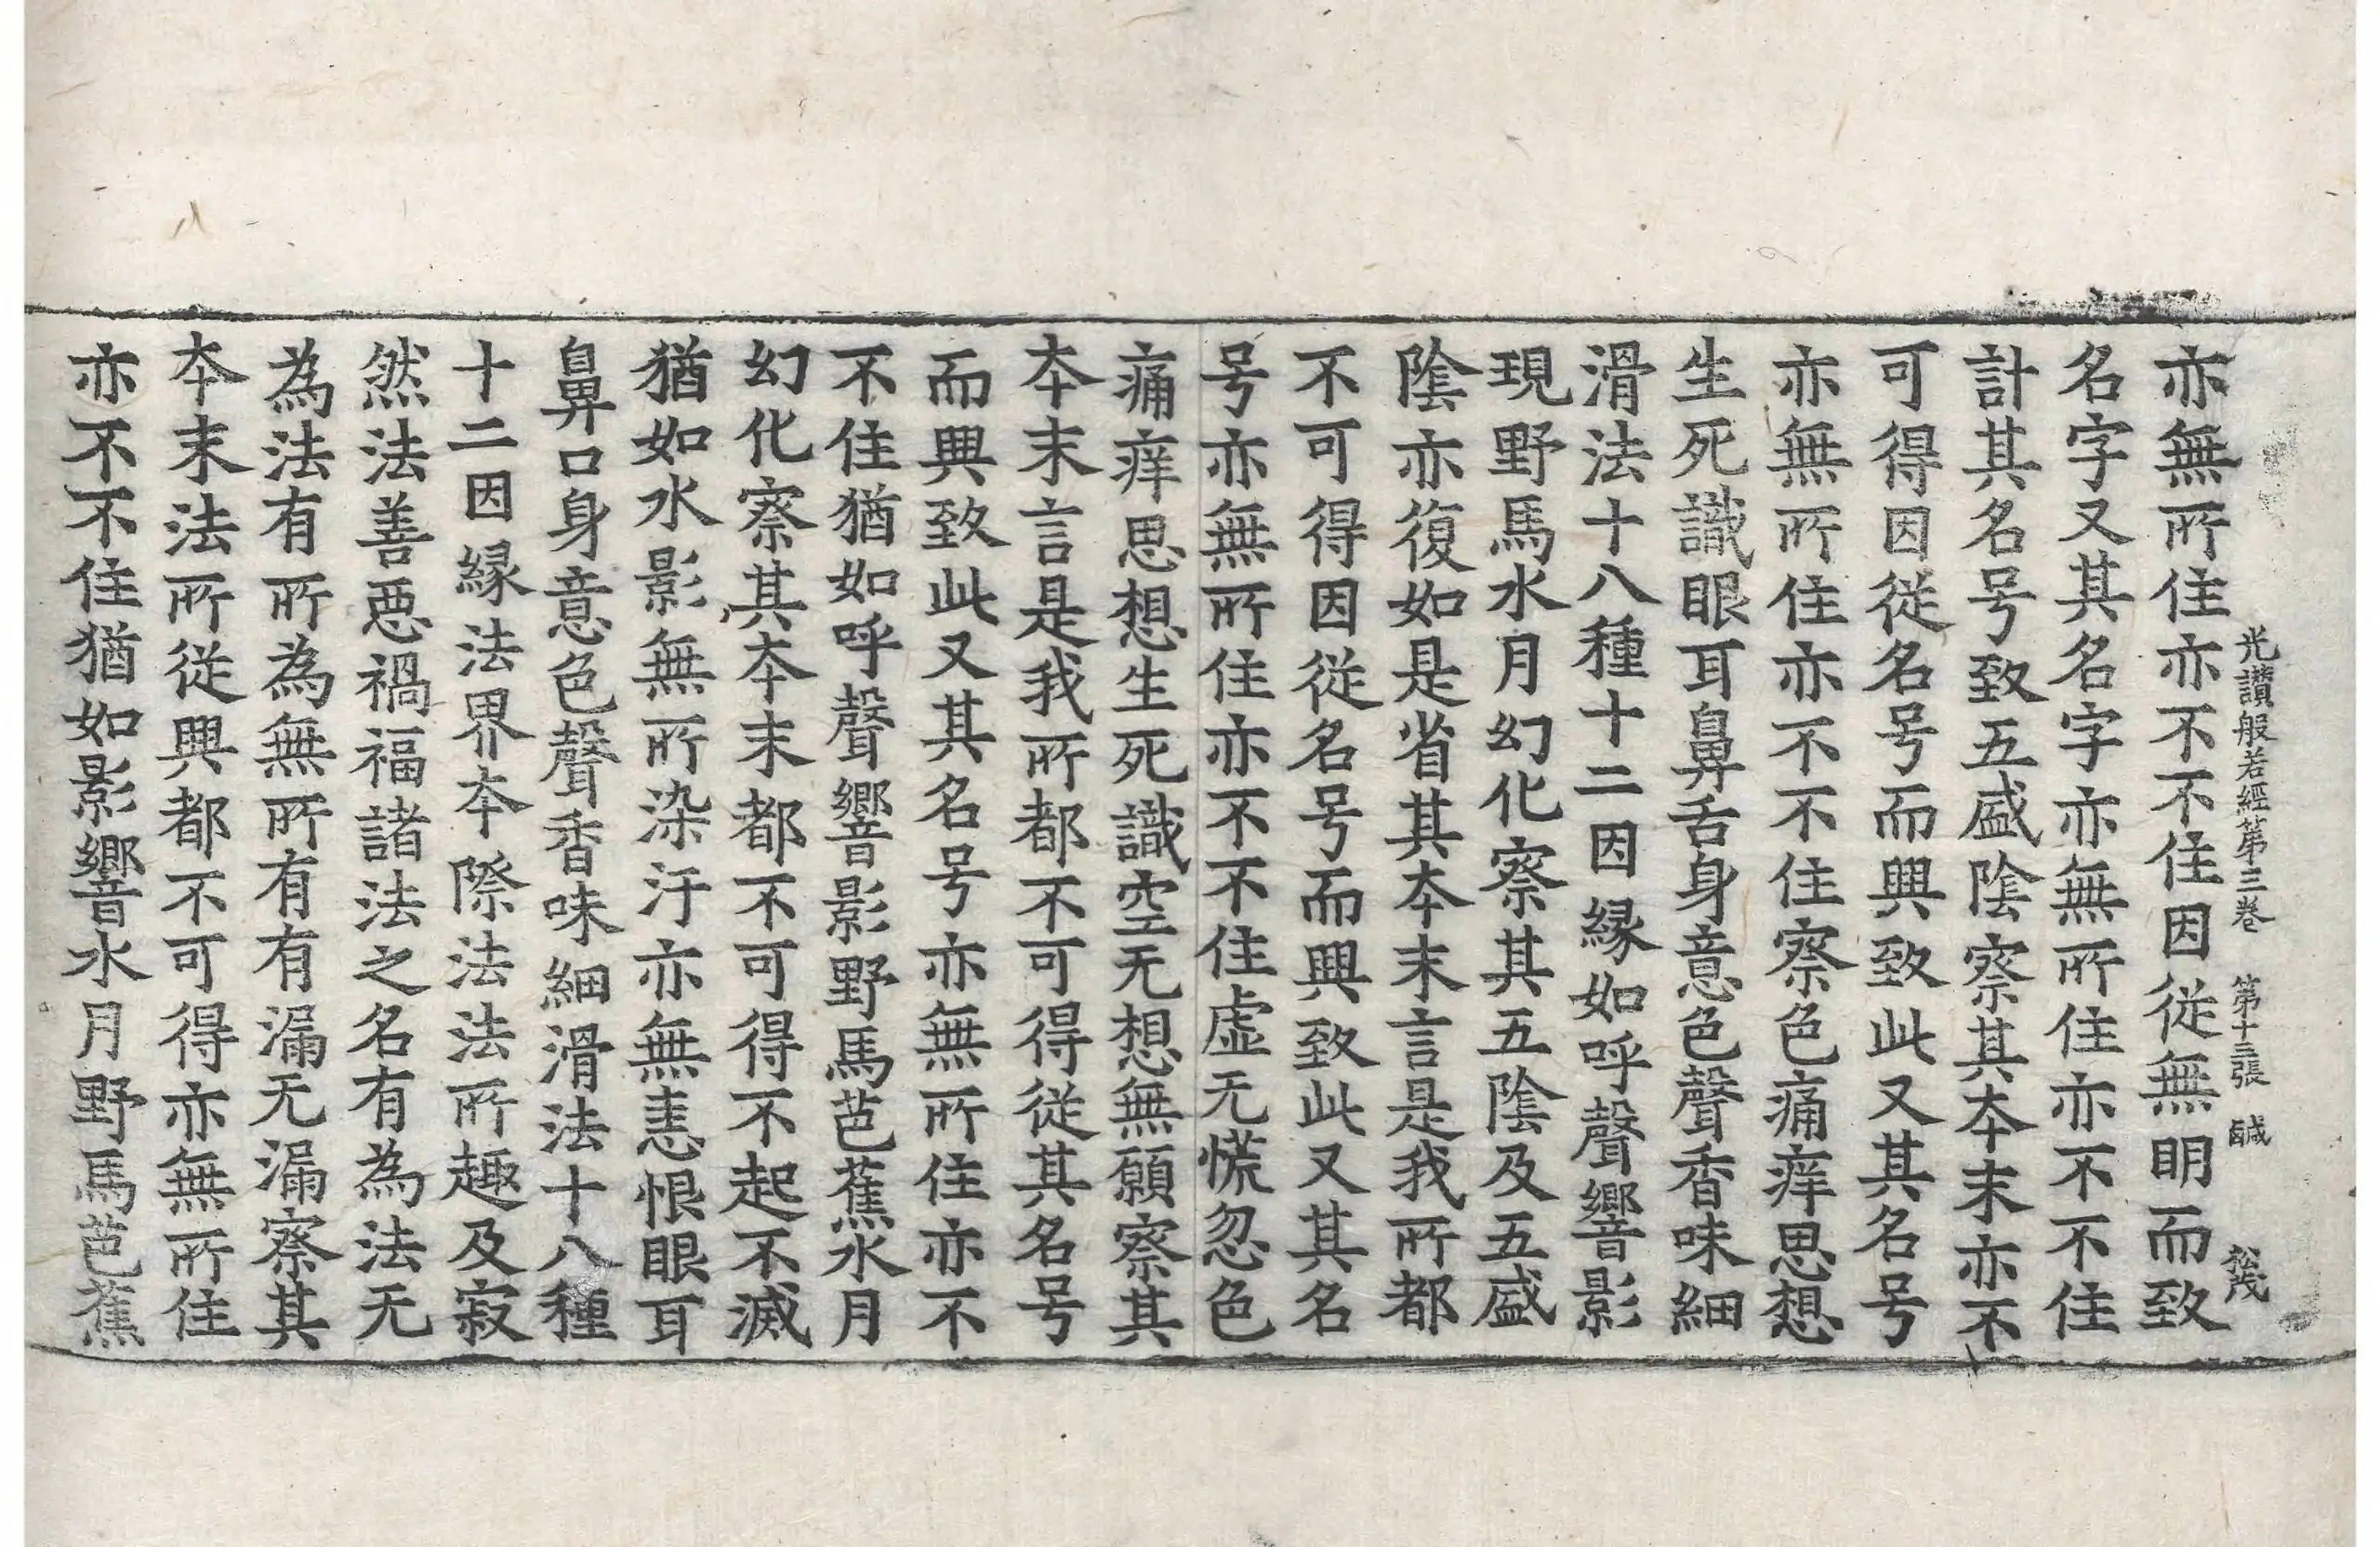 光讃般若經第三卷　第十三張　鹹　松茂
亦無所住亦不不住因從無明而致
名字又其名字亦無所住亦不不住
計其名号致五盛陰察其本末亦不
可得因從名号而興致此又其名号
亦無所住亦不不住察色痛痒思想
生死識眼耳鼻舌身意色聲香味細
滑法十八種十二因緣如呼聲響影
現野馬水月幻化察其五陰及五盛
陰亦復如是省其本末言是我所都
不可得因從名号而興致此又其名
号亦無所住亦不不住虛无慌忽色
痛痒思想生死識空无想無願察其
本末言是我所都不可得從其名号
而興致此又其名号亦無所住亦不
不住猶如呼聲響影野馬芭蕉水月
幻化察其本末都不可得不起不滅
猶如水影無所染汙亦無恚恨眼耳
鼻口身意色聲香味細滑法十八種
十二因緣法界本際法法所趣及寂
然法善惡禍福諸法之名有為法无
為法有所為無所有有漏无漏察其
本末法所從興都不可得亦無所住
亦不不住猶如影響水月野馬芭蕉